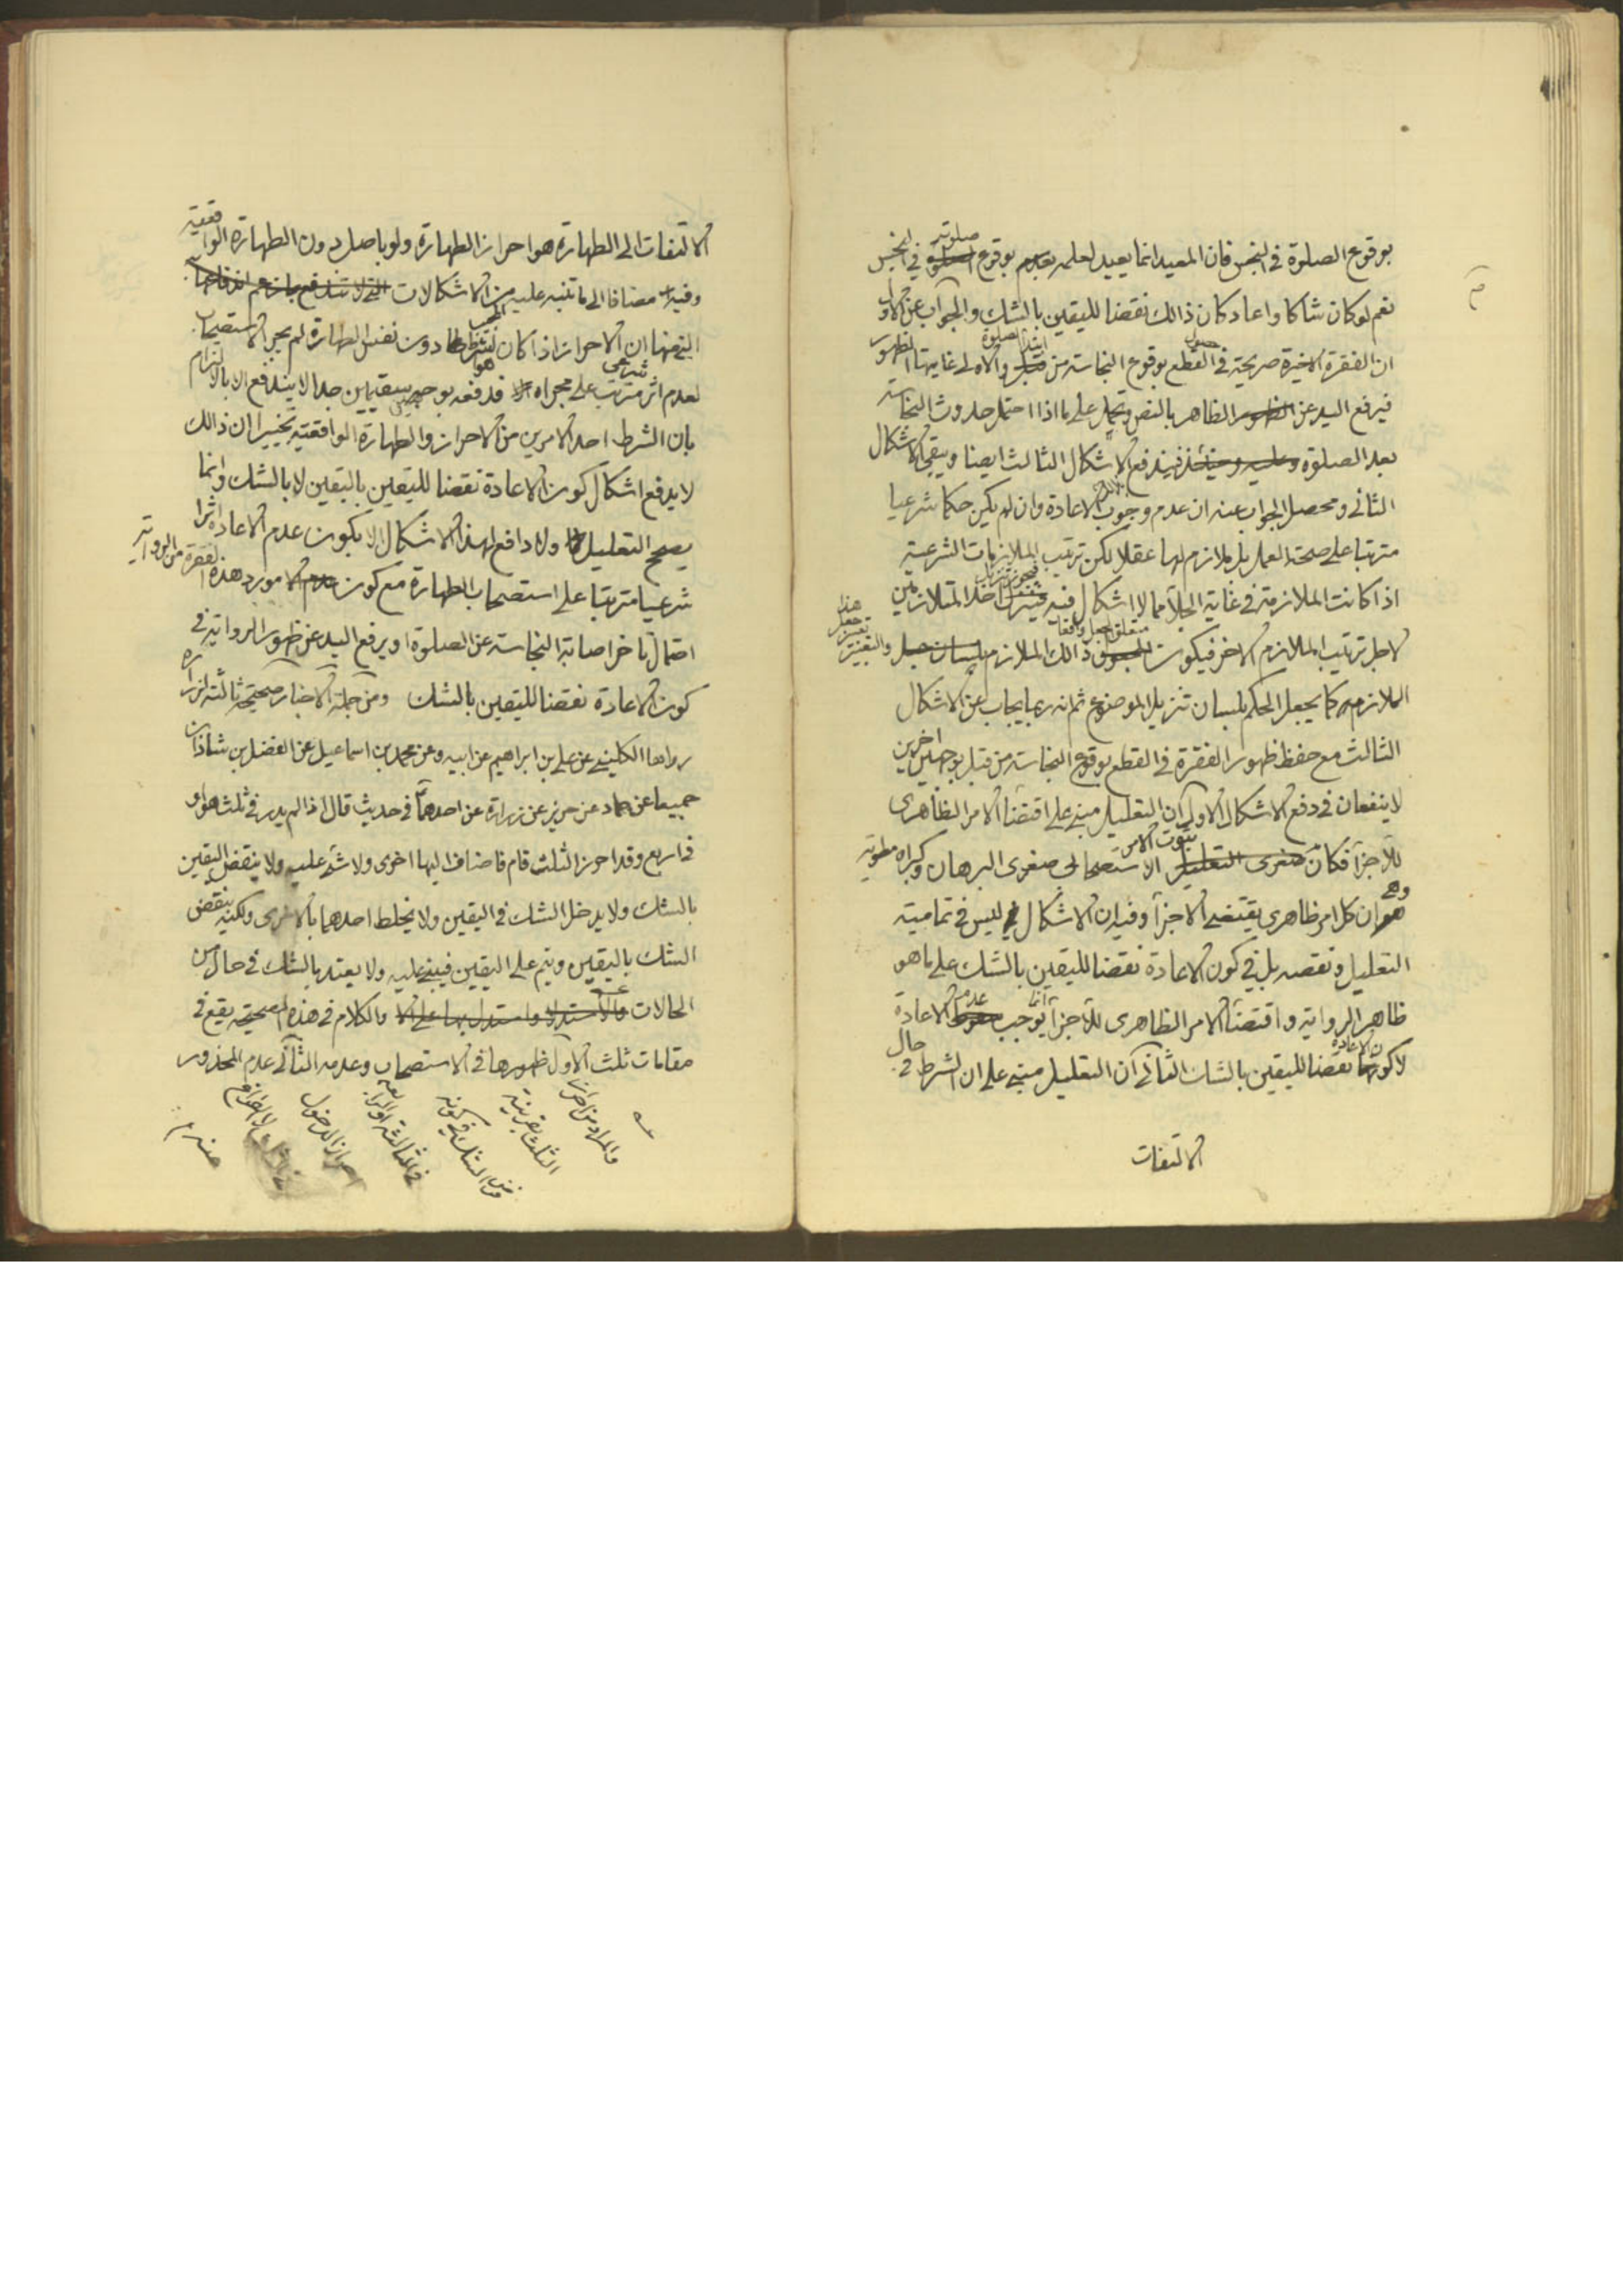 بوقوع الصلوة فى النجس فان المعيد انما يعيد لعلمه بوقوع صلوته فى النجس
نعم لو كان شاكا واعاد كان ذالك نقضا لليقين بالشك والجواب عن الاول
ان الفقرة الاخيرة صريحة فى حصول القطع بوقوع النجاسة من ابتداء الصلوة والاولى غايتها الظهور
فيرفع اليد عن الظاهر بالنص ويحمل على ما اذا احتمل حدوث النجاسة
بعد الصلوة فيندفع الاشكال الثالث ايضا ويبقى الاشكال
الثانى ومحصل الجواب عنه ان عدم وجوب الاعادة وان لم يكن حكما شرعيا
مترتبا على صحة العمل بل ملازم لها عقلا لكن ترتيب الملازمات الشرعية
اذا كانت الملازمة فى غاية الجلاء مما لا اشكال فيه فيجوز تنزيل احد المتلازمين
لاجل ترتيب الملازم الاخر فيكون متعلق الجعل واقعا ذالك الملازم والتعبير هذا تعبير جعل
الملازم كما يجعل الحكم بلسان تنزيل الموضوع ثم انه ربما يجاب عن الاشكال
الثالث مع حفظ ظهور الفقرة فى القطع بوقوع النجاسة من قبل بوجهين اخرين
لا ينفعان فى دفع الاشكال الاول ان التعليل مبنى على اقتضاء الامر الظاهرى
للاجزاء فكان ثبوت الامر الاستصحابى صغرى البرهان وكبراه مطوية
وهى ان كل امر ظاهرى يقتضى الاجزاء وفيه ان الاشكال ليس فى تمامية
التعليل ونقصه بل فى كون الاعادة نقضا لليقين بالشك على ما هو
ظاهر الرواية واقتضاء الامر الظاهرى للاجزاء انما يوجب عدم الاعادة
لا كون الاعادة نقضا لليقين بالشك الثانى ان التعليل مبنى على ان الشرط فى حال
الالتفات
الالتفات الى الطهارة هو احراز الطهارة ولو باصل دون الطهارة الواقعية
وفيه مضافا الى ما تنبه عليه من الاشكالات
التى منها ان الاحراز اذا كان شرطا دون نفس الطهارة لم يجر الاستصحاب
لعدم اثر شرعى مترتب على مجراه قد دفعه بوجهين سقيمين جدا لا يندفع الا بالالتزام
بان الشرط احد الامرين من الاحراز والطهارة الواقعية تخييرا ان ذالك
لا يدفع اشكال كون الاعادة نقضا لليقين باليقين لا بالشك وانما
يصحح التعليل ولا دافع لهذا الاشكال الا بكون عدم الاعادة اثرا
شرعيا مترتبا على استصحاب الطهارة مع كون مورد هذه الفقرة من الرواية
احتمال تاخر اصابة النجاسة عن الصلوة او يرفع اليد عن ظهور الرواية فى
كون الاعادة نقضا لليقين بالشك ومن جملة الاخبار صحيحة ثالثة لزرارة
رواها الكلينى عن على بن ابراهيم عن ابيه وعن محمد بن اسماعيل عن الفضل بن شاذان
جميعا عن حماد عن حريز عن زرارة عن احدهما فى حديث قال اذا لم يدر فى ثلث هو او
فى اربع وقد احرز الثلث قام فاضاف اليها اخرى ولا شئ عليه ولا ينقض اليقين
بالشك ولا يدخل الشك فى اليقين ولا يخلط احدهما بالاخرى ولكنه ينقض
الشك باليقين ويتم على اليقين فيبنى عليه ولا يعتد بالشك فى حال من
الحالات والكلام فى هذه الصحيحة يقع فى
مقامات ثلث الاول ظهورها فى الاستصحاب وعدمه الثانى عدم المحذور
والمراد من احراز
الثلث بقرينة
فرض الشك فى كونه
فى الثالثة او الرابعة
احراز الدخول
لا الفراغ
منه